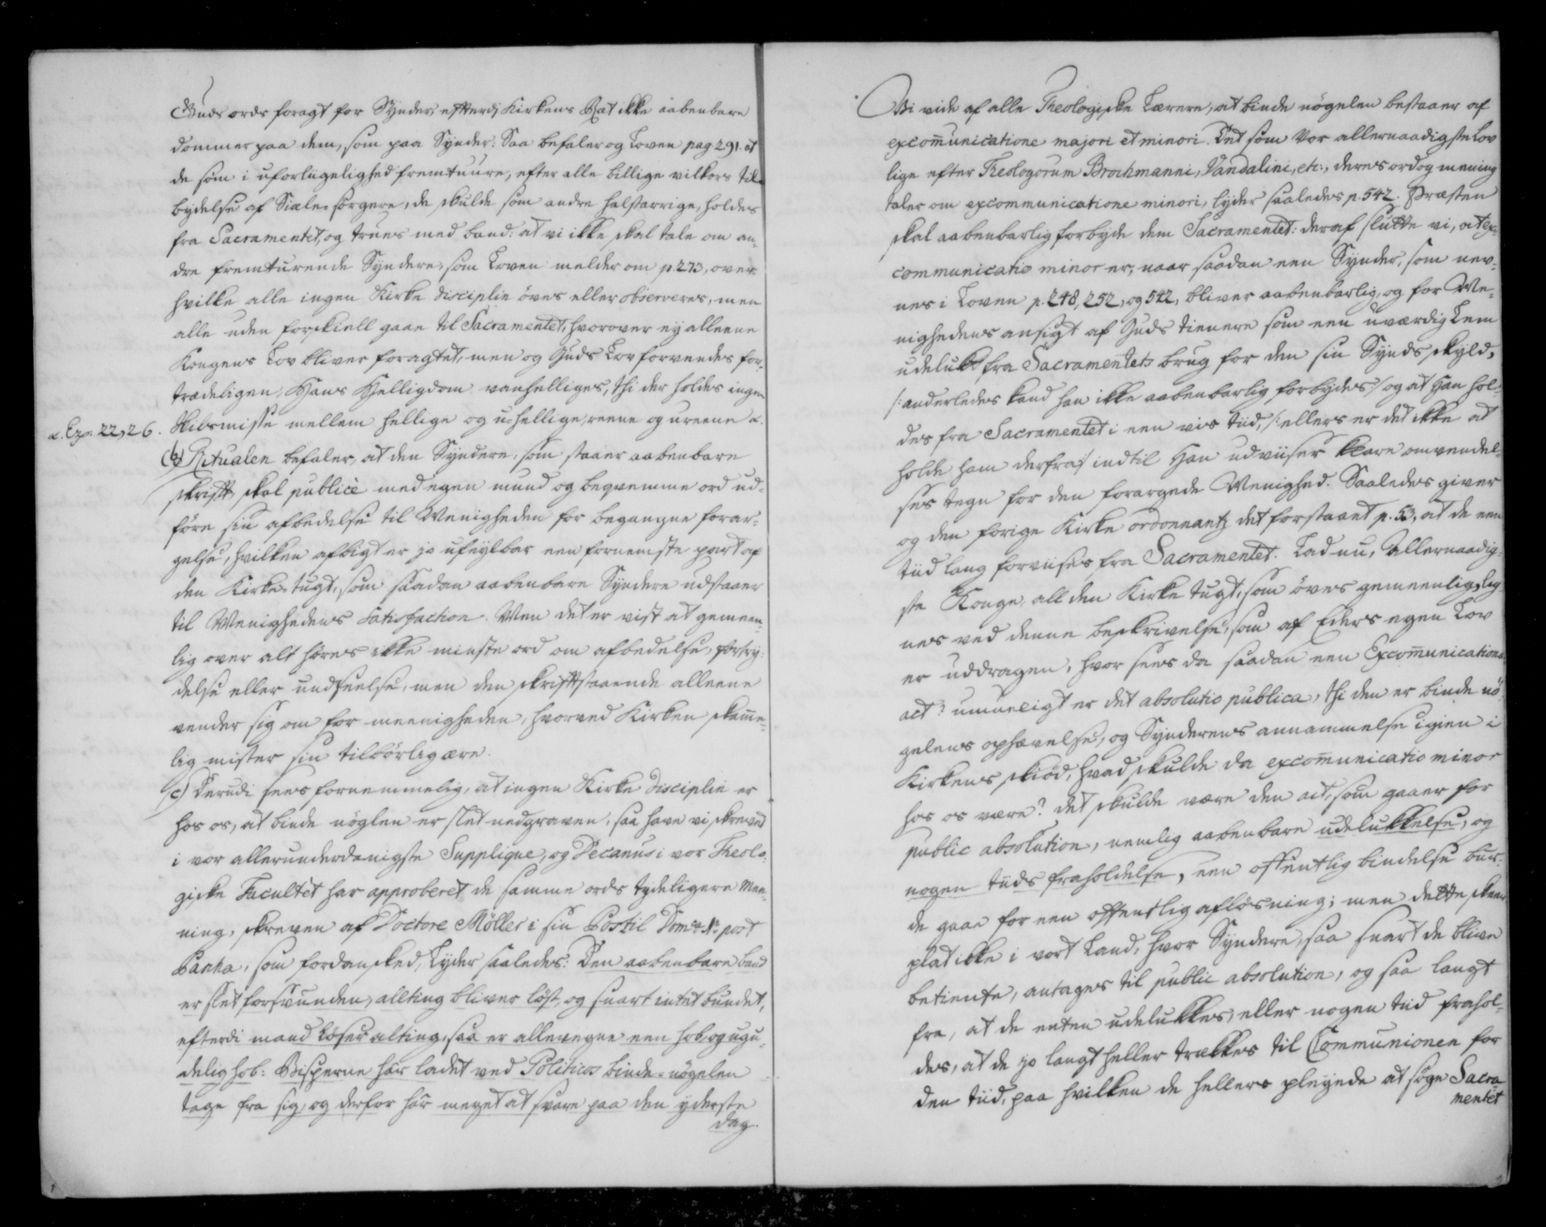 Guds ords foragt for Synder, efterdi Kirkens Ræt ikke aabenbare
dommer paa dem, som paa Synder: Saa befaler og Loven pag 291. at
de som i uforligelighed fremtuure, efter alle billige vilkors til-
bydelse af Siæle-sørgere, de skulde som andre halstarrige, holdes
fra Sacramentet, og trues med band: at vi ikke skal tale om an-
dre fremturende Syndere, som Loven melder om p 273, over
hvilke alle ingen Kirke disciplin öves eller observeres, men
alle uden forskiell gaae til Sacramentet, hvorover ej alleene
Kongens Lov bliver foragtet, men og Guds Lov forvendes for-
trædeligen, Hans Helligdom vanhelliges, thi der holdes ingen
α. Ezr. 22, 26. Skibsmisse mellem hellige og u-hellige, reene og ureene α.
(b) Ritualen befaler, at den Syndere, som staaer aabenbare
skrift, skal publicè med egen mund og beqvemme ord ud-
före sin afbedelse til Menigheden for begangne forar-
gelse, hvilken afbigt er jo ufejlbar een fornemste part af
den Kirke-tugt, som saadan aabenbare Syndere udstaaer
til Menighedens Satisfaction. Men det er vist at gemeen-
lig over alt höres ikke minste ord om afbedelse, fortry-
delse eller undseelse, men den skriftstaaende alleene
vender sig om for meenigheden, hvorved Kirken skamme-
lig mister sin tilbörlig ære.
c) Derudi sees fornemmelig, at ingen Kirke Disciplin er
hos os, at binde nöglen er slet nedgraven, saa have vi skrevet
i vor allerunderdanigste Supplique, og Decanus i vor Theolo-
giske Facultet har approberet de samme ords tydeligere Mee-
ning, skreven af Doctore Møller i sin Postil Dom: 1. post
Pascha, som fordansked, lyder saaledes: Den aabenbare band
er slet forsvunden, allting bliver löst, og snart intet bundet,
efterdi mand löser alting, saa er allevegne een hob, og ugu-
delig hob: Bisperne har ladet ved Politicos binde-nögelen
tage fra sig, og derfor har meget at svare paa den yderste
dag.
Vi vide af alle Theologiske Lærere, at binde nögelen bestaaer af
excommunicatione majori et minori. Det som Vor allernaadigste Lov
lige efter Theologorum Brochmanni, Vandalini, etc, deres ord og mening
taler om excommunicatione minori, lyder saaledes p. 542. Præsten
skal aabenbarlig forbyde dem Sacramentet: deraf slutte vi, at ex-
communicatio minor er, naar saadan een Synder, som nev-
nes i Loven p. 248, 252, og 542, bliver aabenbarlig, og for Me-
nighedens ansigt af Guds tienere som een uværdig Lem
udelukt fra Sacramentets brug for den sin Synds skyld,
/: anderledes kand han ikke aabenbarlig forbydes :/ og at Han hol-
des fra Sacramentet i een vis tiid, /: ellers er det ikke at
holde ham derfra :/ indtil Han udviiser klare omvendel-
ses tegn for den forargede Menighed. Saaledes giver
og den forige Kirke ordonnantz det forstaaet p. 53, at de een
tiid lang forviises fra Sacramentet. Lad nu, Allernaadig-
ste Konge, all den Kirke tugt, som öves gemeenlig, lig-
nes ved denne beskrivelse, som af Eders egen Lov
er uddragen, hvor sees da saadan een Excommunications
act? umueligt er det absolutio publica, thi den er binde nö-
gelens ophævelse, og Synderens annammelse igien i
Kirkens skiöd, hvad skulde da excommunicatio minor
hos os være? det skulde være den act, som gaaer for
public absolution, nemlig aabenbare udelukkelse, og
nogen tiids fraholdelse, een offentlig bindelse bur-
de gaae for een offentlig aflösning; men dette skeer
plat ikke i vort Land, hvor Syndere, saa snart de blive
betiente, antages til public absolution, og saa langt
fra, at de enten udelukkes, eller nogen tiid frahol-
des, at de jo langt heller trækkes til Communionen for
den tiid, paa hvilken de hellers plejede at söge Sacra-
mentet